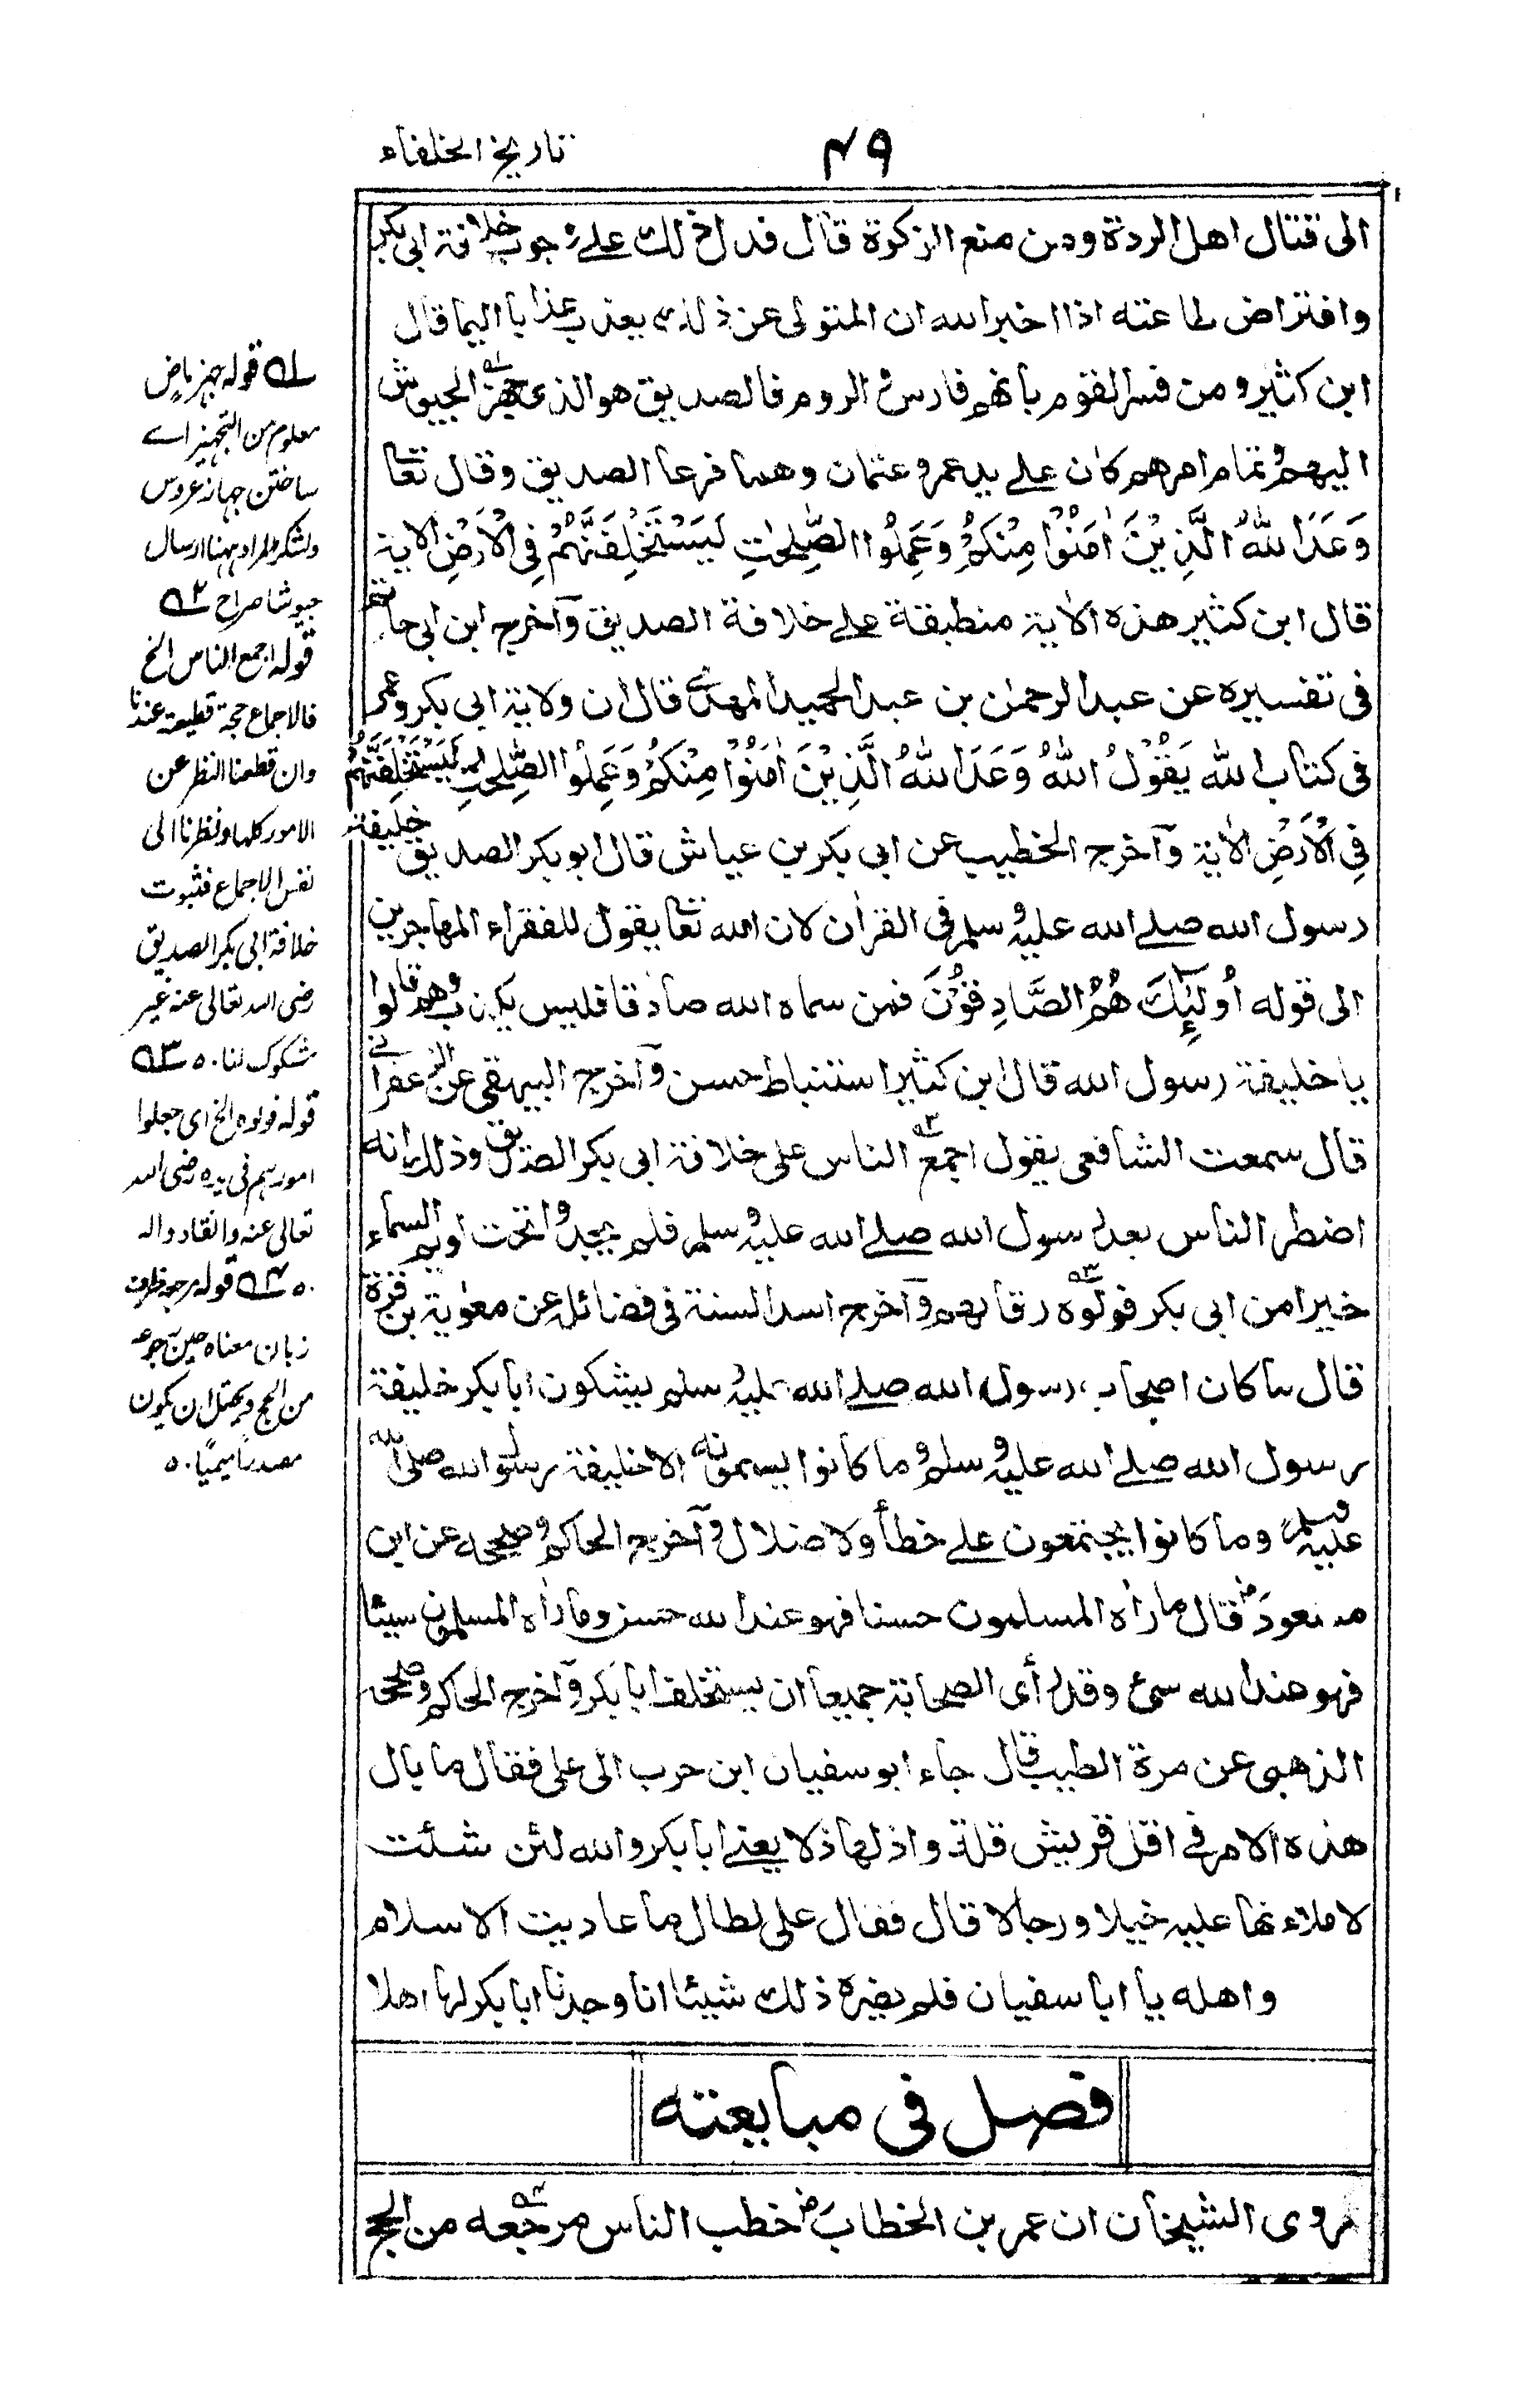 ٤٩
تاريخ الخلفاء
الى قتال اهل الردة ومن منع الزكوة قال فدل ذلك على وجوب خلافة ابى بكر
وافتراض طاعته اذا اخبر الله ان المتولى عن ذلك يعذب عذابا اليما قال
ابن كثير ومن فسر القوم بانهم فارس والروم فالصديق هو الذى جهز الجيوش
اليهم وتمام امرهم كان على يد عمر وعثمان وهما فرعا الصديق وقال تعا
وَعَدَ اللّٰهُ الَّذِيْنَ اٰمَنُوْا مِنْكُمْ وَعَمِلُوا الصّٰلِحٰتِ لَيَسْتَخْلِفَنَّهُمْ فِي الْاَرْضِ الاية
قال ابن كثير هذه الاٰية منطبقة على خلافة الصديق وآخرج ابن ابى حاتم
فى تفسيره عن عبد الرحمن بن عبد الحميد المهدى قال ان ولاية ابى بكر وعمر
فى كتاب الله يَقُوْلُ اللّٰهُ وَعَدَ اللّٰهُ الَّذِيْنَ اٰمَنُوْا مِنْكُمْ وَعَمِلُوا الصّٰلِحٰتِ لَيَسْتَخْلِفَنَّهُمْ
فِي الْاَرْضِ الاٰية وآخرج الخطيب عن ابى بكر بن عياش قال ابو بكر الصديق خليفة
رسول الله صلے الله عليه وسلم فى القراٰن لان الله تعا يقول للفقراء المهاجرين
الى قوله اُولٰٓئِكَ هُمُ الصَّادِقُوْنَ فمن سماه الله صادقا فليس يكذب وهم قالوا
يا خليفة رسول الله قال ابن كثير استنباط حسن وآخرج البيهقى عن الزعفرانى
قال سمعت الشافعى يقول اجمع الناس على خلافة ابى بكر الصديق وذلك انه
اضطر الناس بعد رسول الله صلے الله عليه وسلم فلم يجدوا تحت اديم السماء
خيرا من ابى بكر فولوه رقابهم وآخرج اسد السنة فى فضائله عن معٰوية بن قرة
قال ما كان اصحاب رسول الله صلے الله عليه وسلم يشكون ابا بكر خليفة
رسول الله صلے الله عليه وسلم وما كانوا يسمونه الا خليفة رسول الله صلى الله
عليه وسلم وما كانوا يجتمعون على خطأ ولا ضلال وآخرج الحاكم وصححه عن ابن
مسعود رض قال ما رأه المسلمون حسنا فهو عند الله حسن وما رأه المسلمون سيئا
فهو عند الله سئ وقد رأى الصحابة جميعا ان يستخلف ابا بكر وآخرج الحاكم وصححه
الذهبى عن مرة الطيب قال جاء ابو سفيان ابن حرب الى على فقال ما بال
هذه الامر فى اقل قريش قلة واذلها ذلا يعنے ابا بكر والله لئن شئت
لاملاءنها عليه خيلا ورجالا قال فقال على لطال ما عاديت الاسلام
واهله يا ابا سفيان فلم يضره ذلك شيئا انا وجدنا ابا بكر لها اهلا
فصل فى مبايعته
روى الشيخان ان عمر بن الخطاب رض خطب الناس مرجعه من الحج
له قوله جهز ماض
معلوم من التجهيز اے
ساختن جهاز عروس
ولشكر والمراد ههنا ارسال
جيوشا صراح ٢ه
قوله اجمع الناس الخ
فالاجماع حجة قطيعة عندنا
وان قطعنا النظر عن
الامور كلها ونظرنا الى
نفس الاجماع فثبوت
خلافة ابى بكر الصديق
رضى الله تعالى عنه غير
شكوك لنا ٣ه
قوله فولوه الخ اى جعلوا
امورهم فى يده رضى الله
تعالى عنه وانقادوا له
٤ه قوله مرجعه ظرف
زبان معناه حين رجوعه
من الحج ويحتمل ان يكون
مصدرا ميميًا